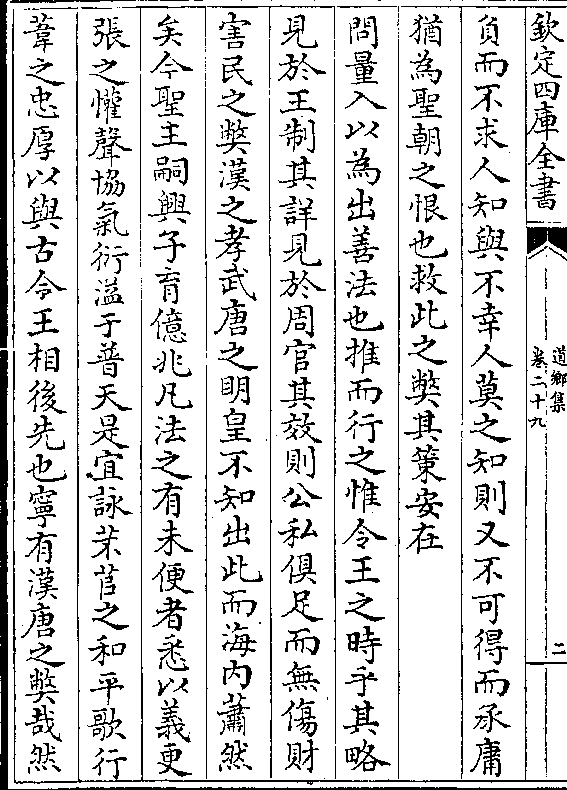 欽定四庫全書
道鄉集
卷二十九
二
負而不求人知與不幸人莫之知則又不可得而承庸
猶為聖朝之恨也救此之獘其策安在
問量入以為出善法也推而行之惟令王之時乎其略
見於王制其詳見於周官其效則公私俱足而無傷財
害民之獘漢之孝武唐之明皇不知出此而海内蕭然
矣今聖主嗣興子育億兆凡法之有未便者悉以義更
張之懽聲協氣衍溢于普天是宜詠芣苢之和平歌行
葦之忠厚以與古令王相後先也寧有漢唐之獘哉然